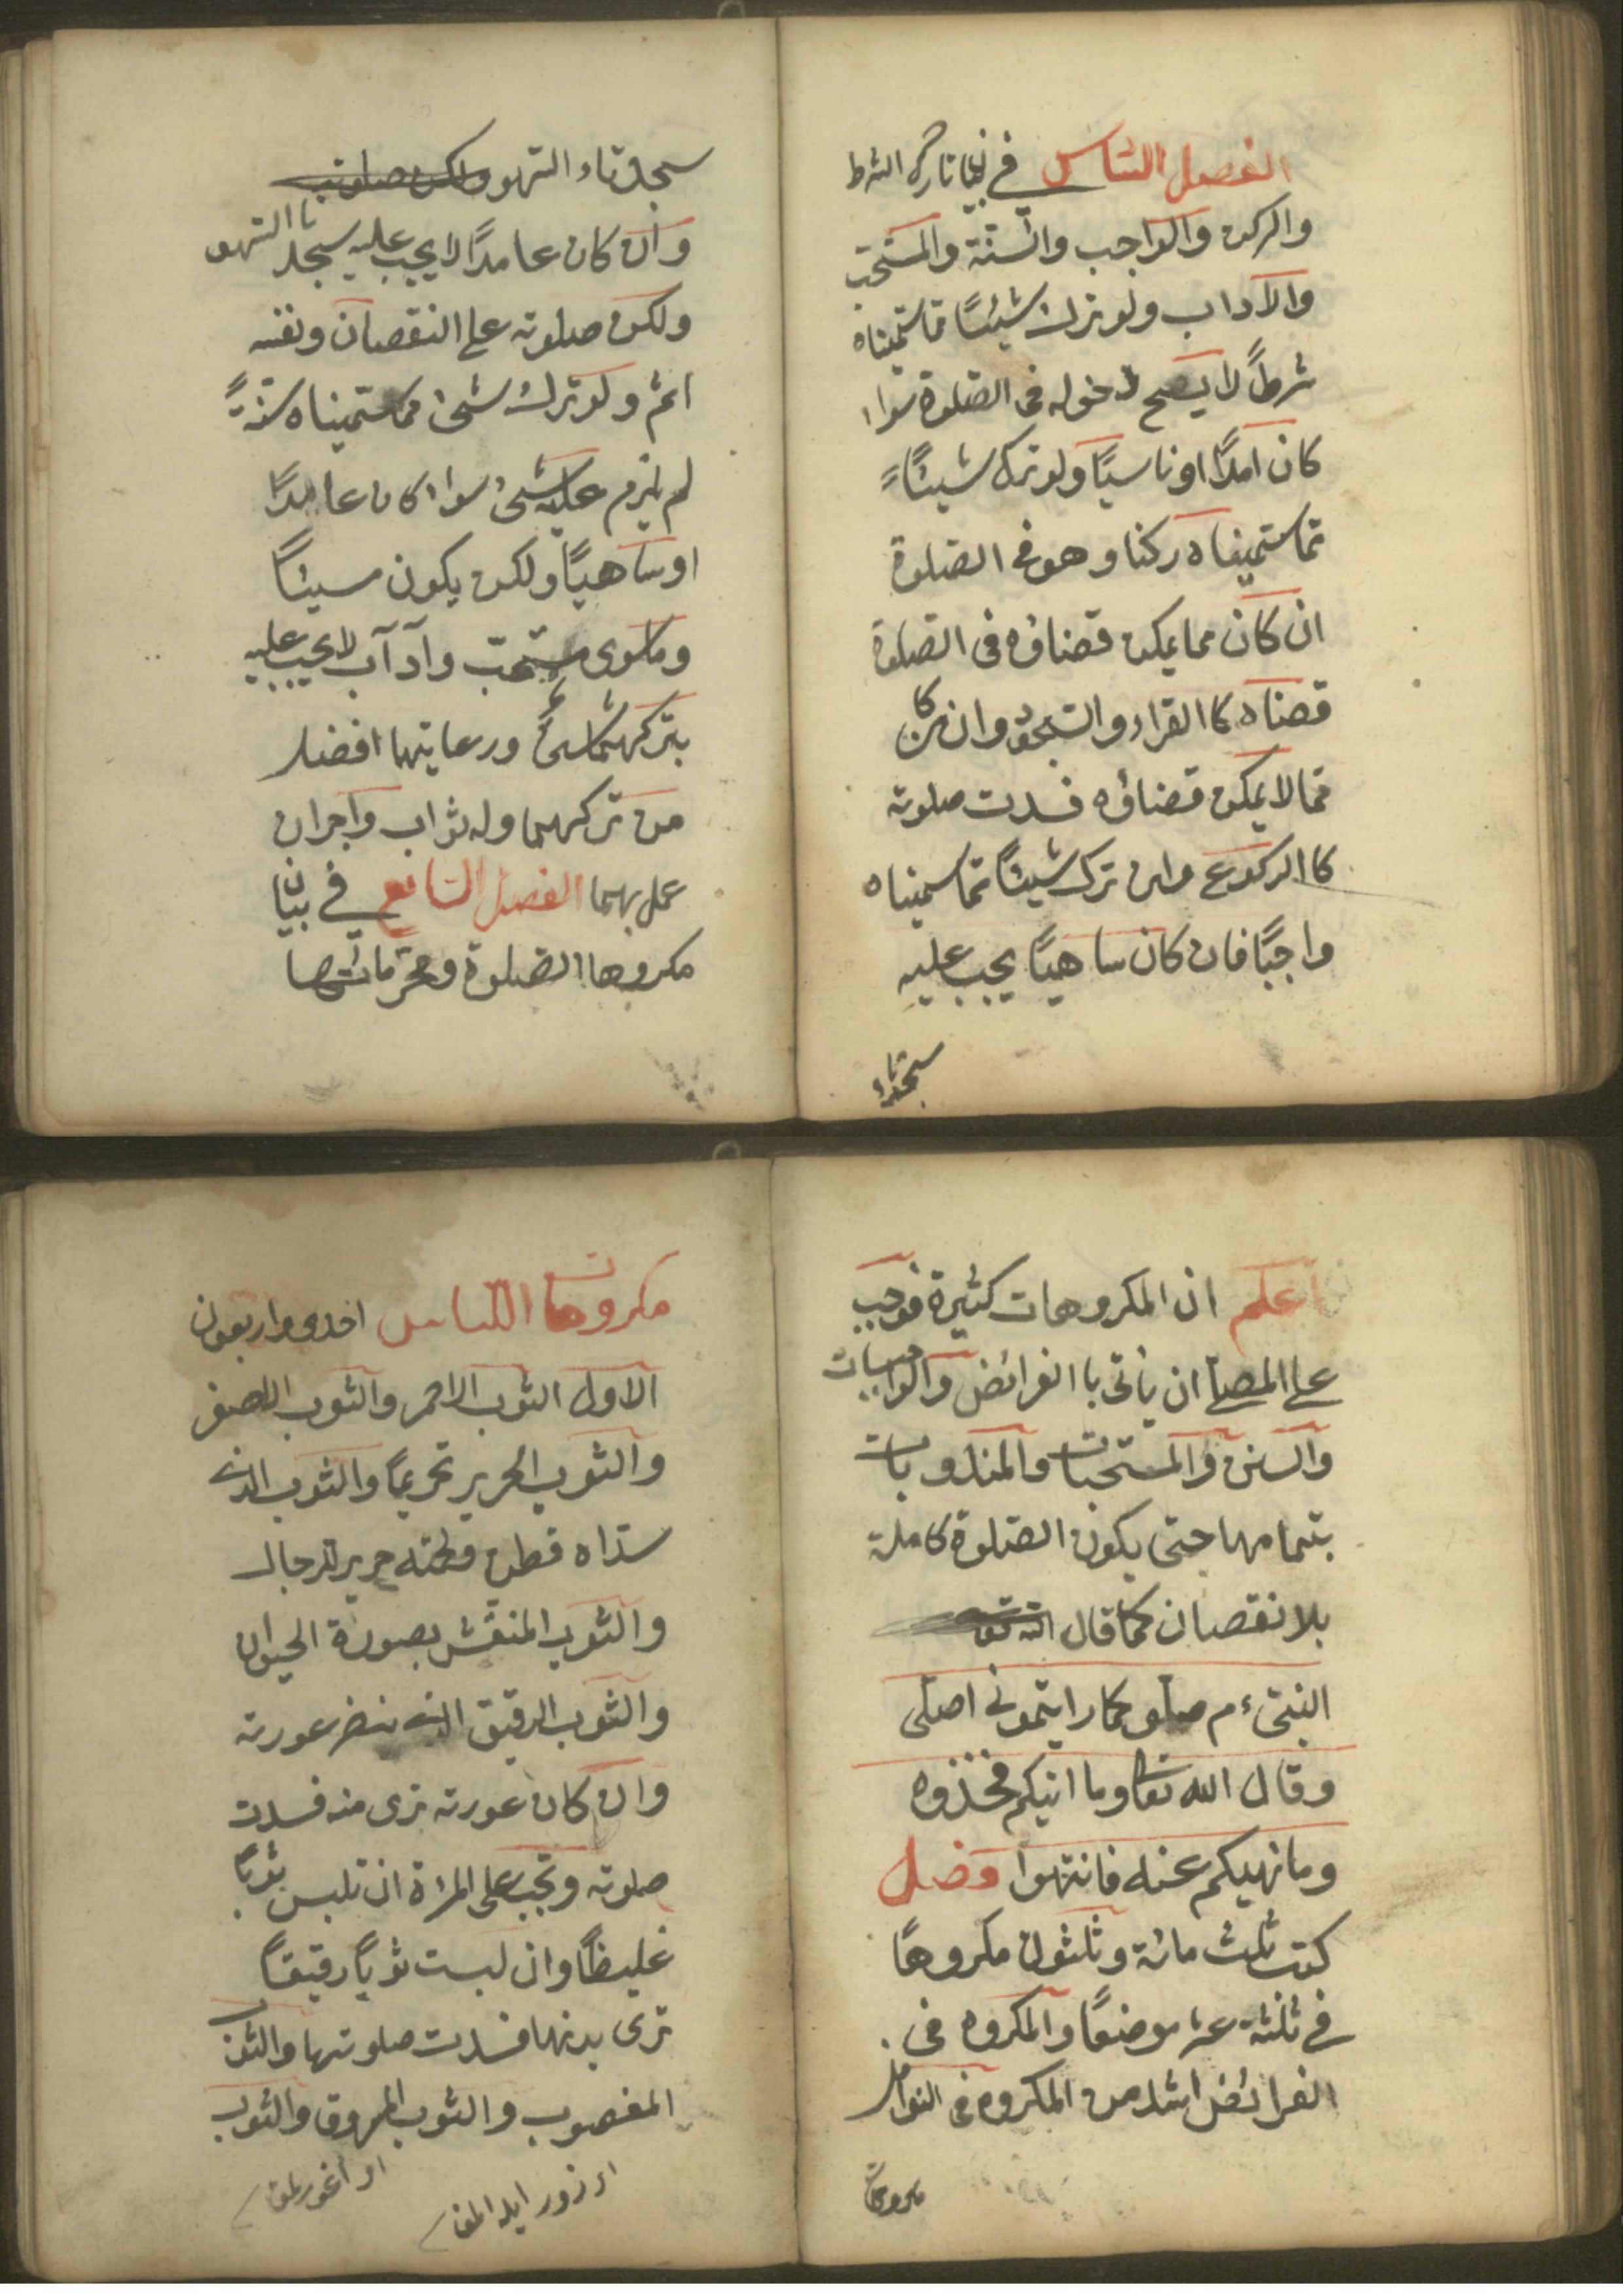 الفصل السادس في بيان تارك الشرط
والركن والواجب والسنة والمستحب
والآداب ولو ترك شيئًا مما سميناه
شرطًا لا يصح دخوله في الصلوة سواء
كان امدًا او ناسيًا ولو ترك شيئًا
مما سميناه ركنا وهو في الصلوة
ان كان مما يمكن قضاؤه في الصلوة
قضاه كا القراء والسجود وان كان
مما لا يمكن قضاؤه فسدت صلوته
كا الركوع وان ترك شيئًا مما سميناه
واجبًا فان كان ساهيًا يجب عليه
سجدتاء
سجدتاء السهو ولكن صلوته
وان كان عامدًا لا يجب عليه سجدتا السهو
ولكن صلوته على النقصان ونفسه
اثم ولو ترك شئ مما سميناه سنةً
لم يلزم عليه شئ سواء كان عامدًا
او ساهيًا ولكن يكون مسيئًا
وما سوى مستحب وآدآب لا يجب عليه
بتركهما شئ ورعايتها افضل
من تركهما وله ثواب واجران
عمل بهما الفصل السابع في بيان
مكروها الصلوة ومحرماتها
اعلم ان المكروهات كثيرة فوجب
على المصلي ان ياتى با الفرائض والواجبات
والسنن والمستحبات والمندوبات
بتمامها حتى يكون الصلوة كاملة
بلا نقصان كما قال الله تعا
النبىء م صلو كما رايتمونى اصلى
وقال الله تعا وما اتيكم فخذوه
وما نهيكم عنه فانتهوا وفصل
كتب ثلث مائة وثلثون مكروهًا
في ثلثة عشر موضعًا والمكروه في
الفرائض اشد من المكروه في النوافل
مكروهات
مكروهات اللباس احدى واربعون
الاول الثوب الاحمر والثوب الاصفر
والثوب الحرير تحريمًا والثوب الذى
سداه قطن ولحمته حرير للرجال
والثوب المنقش بصورة الحيوان
والثوب الرقيق الذى عورته
وان كان عورته ترى منه فسدت
صلوته وتجب على المراة ان تلبس ثوبًا
غليظًا وان لبست ثوبًا رقيقًا
ترى بدنها فسدت صلوتها والثوب
المغصوب والثوب المسروق والثوب
زور ايله المق